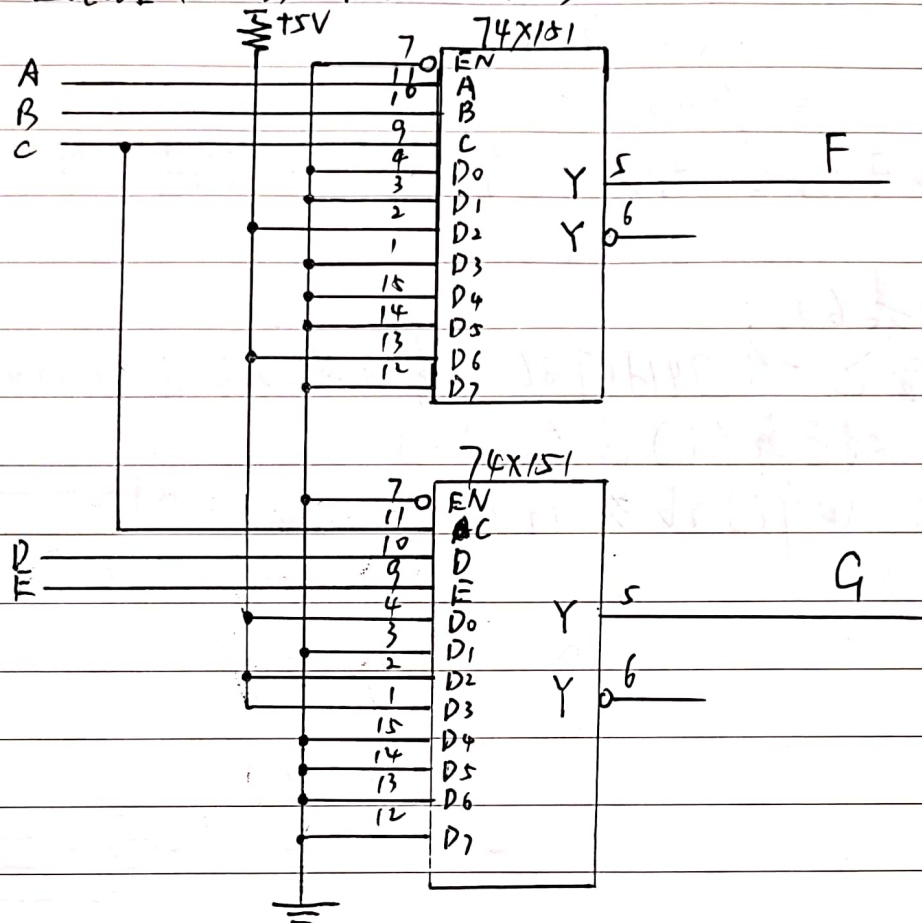 +5V
74X151
7 EN
A 11 A
B 10 B
C 9 C
4 D0
3 D1
2 D2
1 D3
15 D4
14 D5
13 D6
12 D7
Y 5 F
Y 6
74X151
7 EN
11 C
D 10 D
E 9 E
4 D0
3 D1
2 D2
1 D3
15 D4
14 D5
13 D6
12 D7
Y 5 G
Y 6